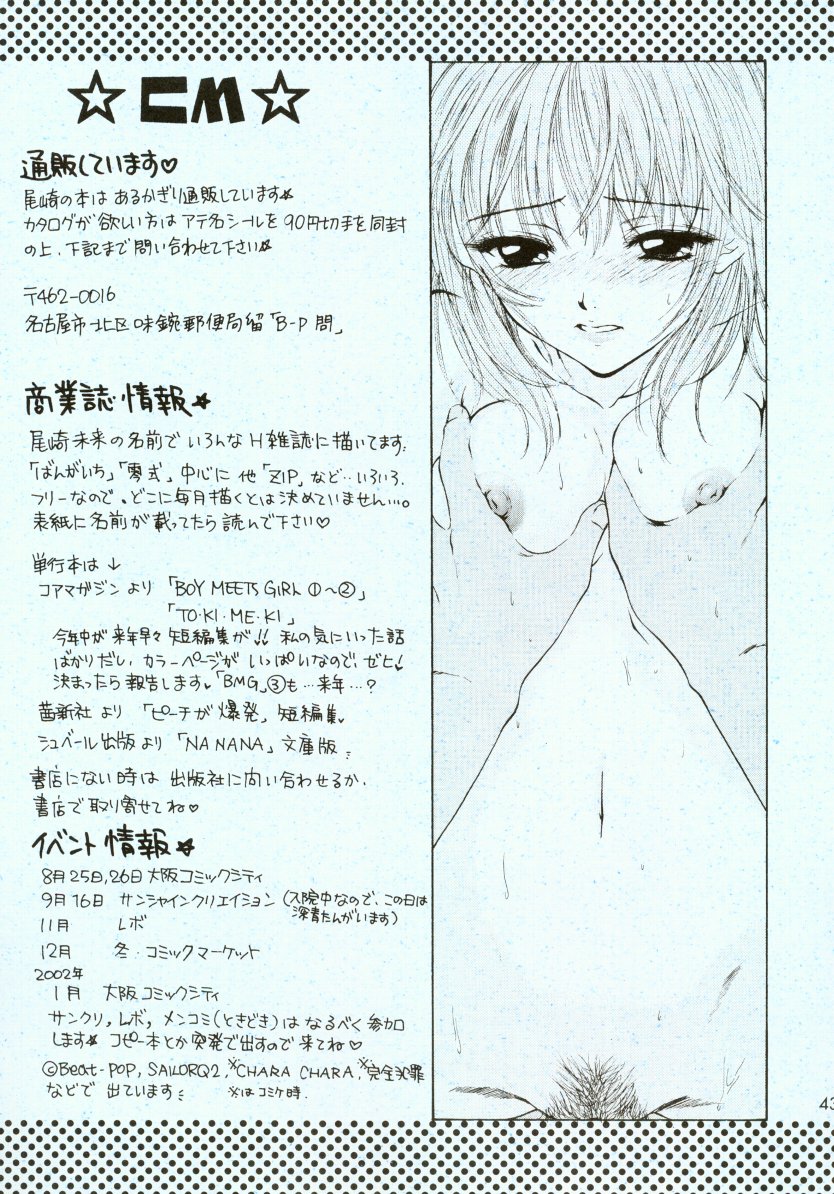 ☆CM☆
通販しています♡
尾崎の本は あるかぎり通販しています★
カタログが欲しい方は アテ名シールを90円切手を同封
の上、下記まで問い合わせて下さい★
〒462-0016
名古屋市北区味鋺郵便局留「B-P 問」
商業誌情報★
尾崎未来の名前で いろんなH雑誌に描いてます。
「ばんがいち」「零式」中心に 他「ZIP」など…いろいろ。
フリーなので、どこに毎月描くとは決めていません…。
表紙に名前が載ってたら読んで下さい♡
単行本は↓
コアマガジンより 「BOY MEETS GIRL ①〜②」
「TO・KI・ME・KI」
今年中が来年早々 短編集が!! 私の気にいった話
ばかりだし、カラーページが いっぱいなので、ゼヒ!
決まったら報告します。「BMG」③も…来年…?
茜新社より 「ピーチが爆発」短編集。
シュベール出版より 「NANANA」文庫版
書店にない時は 出版社に問い合わせるか、
書店で取り寄せてね♡
イベント情報★
8月25日,26日 大阪コミックシティ
9月16日 サンシャインクリエイション(入院中なので、この日は
深青たんがいます)
11月 レボ
12月 冬・コミックマーケット
2002年
1月 大阪コミックシティ
サンクリ, レボ, メンコミ(ときどき)は なるべく参加
します★ コピー本とか突発で出すので来てね♡
©Beat-POP, SAILORQ2, ※CHARA CHARA, ※完全犯罪
などで 出ています ※はコミケ時.
43